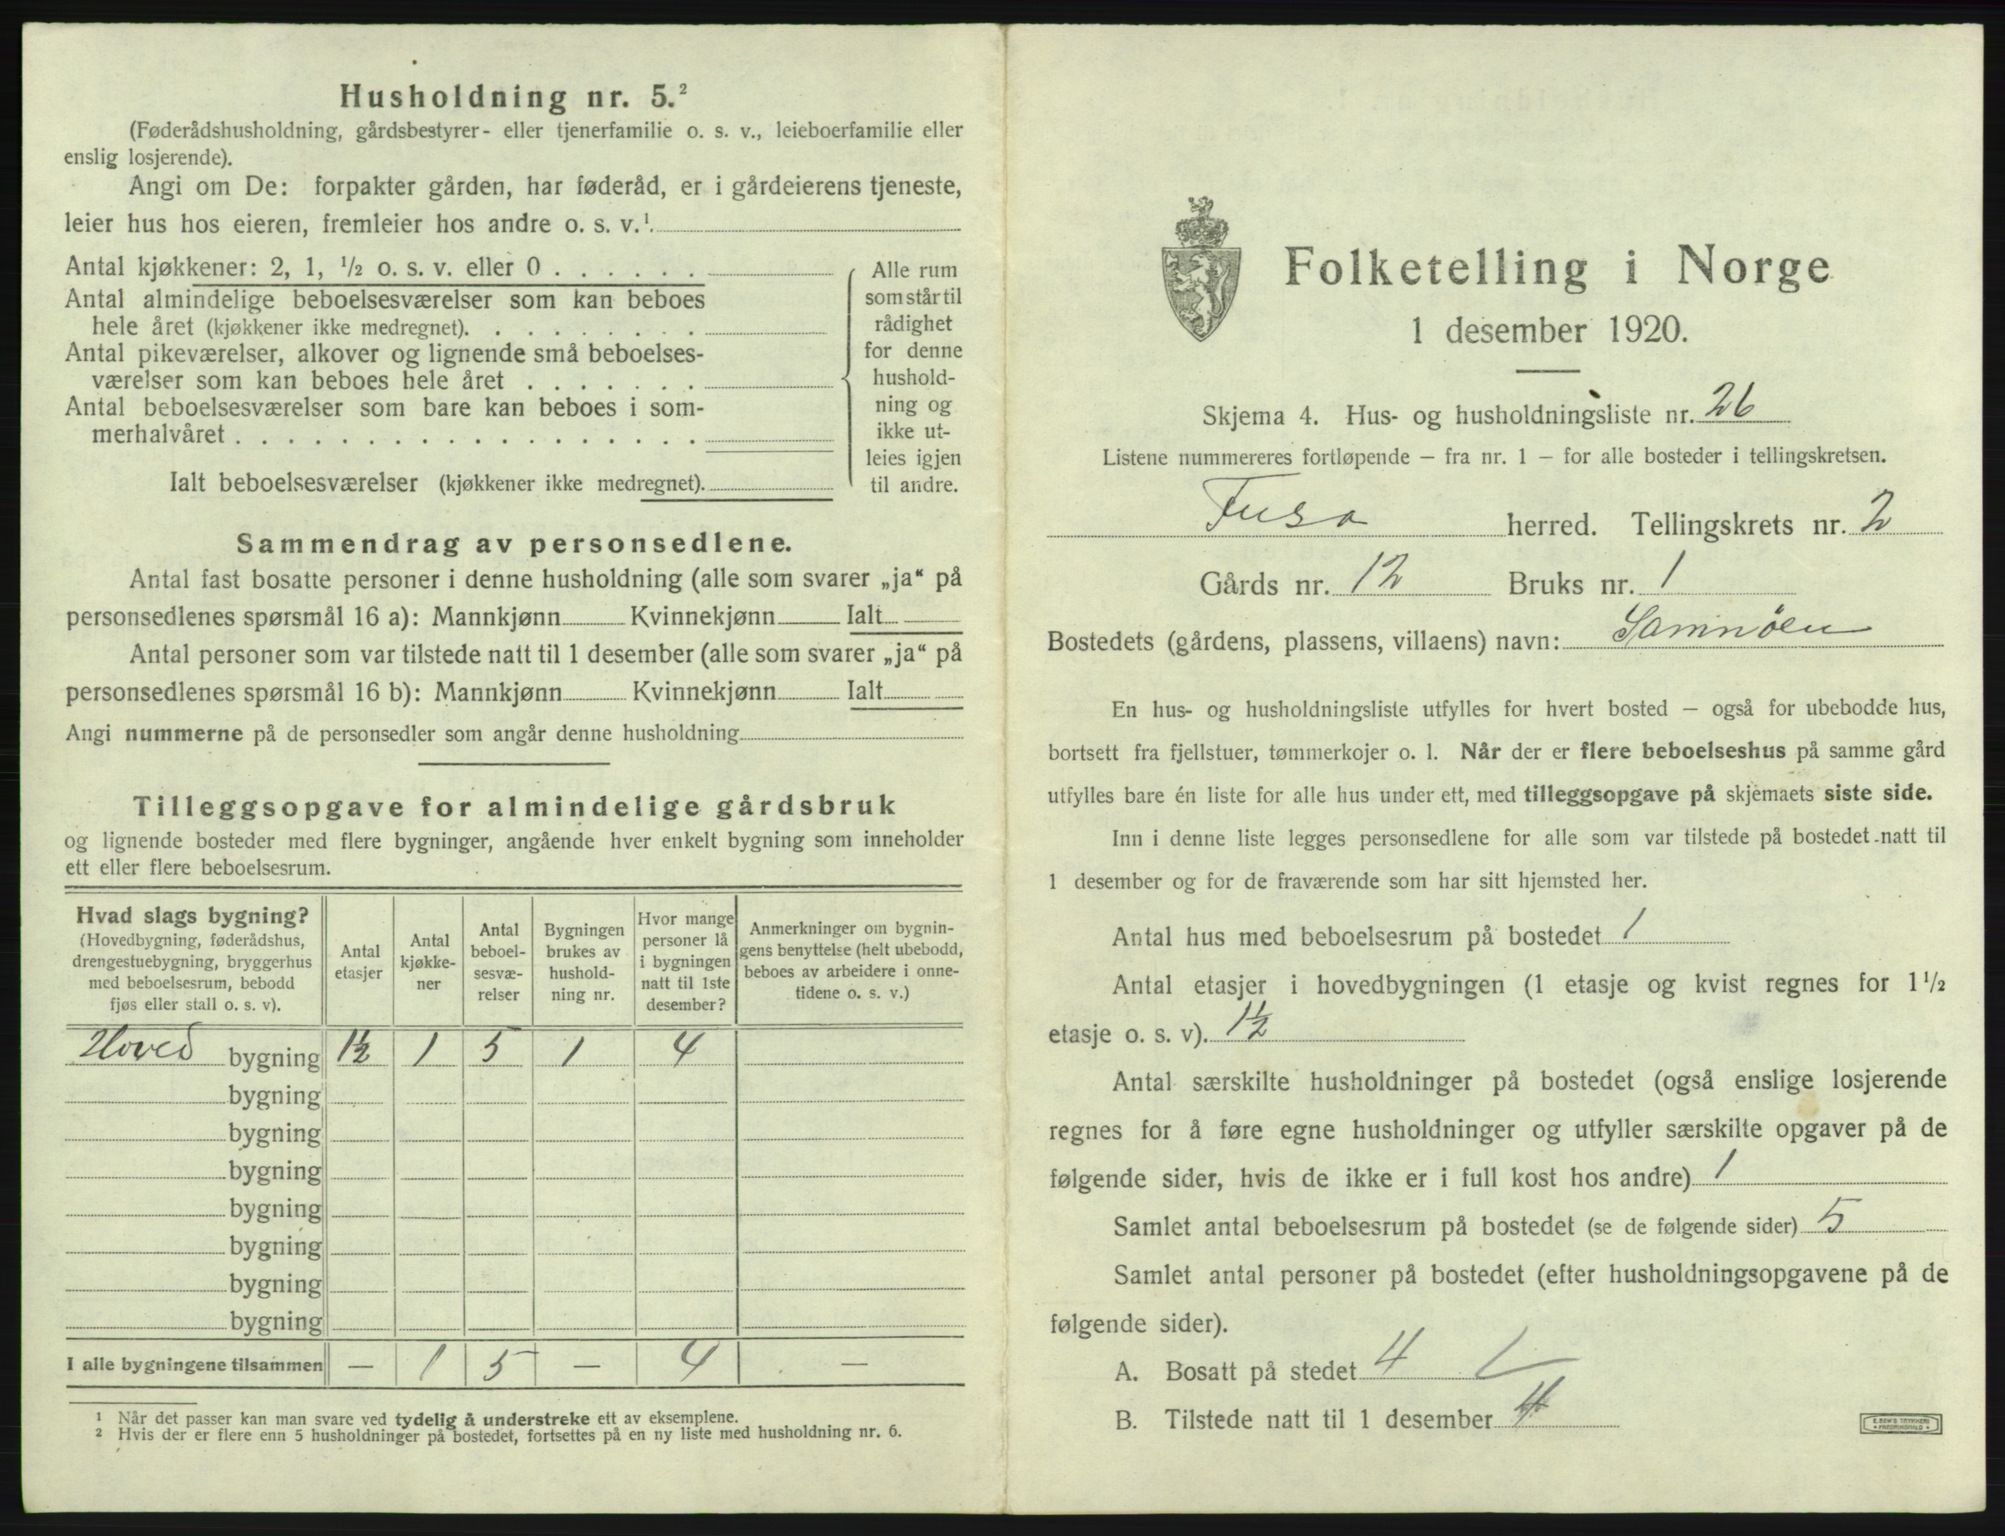 Husholdning nr. 5.²
(Føderådshusholdning, gårdsbestyrer- eller tjenerfamilie o. s. v., leieboerfamilie eller
enslig losjerende).
Angi om De: forpakter gården, har føderåd, er i gårdeierens tjeneste,
leier hus hos eieren, fremleier hos andre o. s. v.¹
Antal kjøkkener: 2, 1, ½ o. s. v. eller 0 . . . . . .
Antal almindelige beboelsesværelser som kan beboes
hele året (kjøkkener ikke medregnet). . . . . . . . .
Antal pikeværelser, alkover og lignende små beboelses-
værelser som kan beboes hele året . . . . . . .
Antal beboelsesværelser som bare kan beboes i som-
merhalvåret . . . . . . . . . . . . . . . . . .
Ialt beboelsesværelser (kjøkkener ikke medregnet).
Alle rum
som står til
rådighet
for denne
hushold-
ning og
ikke ut-
leies igjen
til andre.
Sammendrag av personsedlene.
Antal fast bosatte personer i denne husholdning (alle som svarer „ja“ på
personsedlenes spørsmål 16 a): Mannkjønn Kvinnekjønn Ialt
Antal personer som var tilstede natt til 1 desember (alle som svarer „ja“ på
personsedlenes spørsmål 16 b): Mannkjønn Kvinnekjønn Ialt
Angi nummerne på de personsedler som angår denne husholdning
Tilleggsopgave for almindelige gårdsbruk
og lignende bosteder med flere bygninger, angående hver enkelt bygning som inneholder
ett eller flere beboelsesrum.
Hvad slags bygning?
(Hovedbygning, føderådshus,
drengestuebygning, bryggerhus
med beboelsesrum, bebodd
fjøs eller stall o. s. v).
Antal
etasjer
Antal
kjøkke-
ner
Antal
beboel-
sesvæ-
relser
Bygningen
brukes av
hushold-
ning nr.
Hvor mange
personer lå
i bygningen
natt til 1ste
desember?
Anmerkninger om bygnin-
gens benyttelse (helt ubebodd,
beboes av arbeidere i onne-
tidene o. s. v.)
Hoved bygning 1½ 1 5 1 4
bygning
bygning
bygning
bygning
bygning
bygning
bygning
I alle bygningene tilsammen — 1 5 — 4 —
¹ Når det passer kan man svare ved tydelig å understreke ett av eksemplene.
² Hvis der er flere enn 5 husholdninger på bostedet, fortsettes på en ny liste med husholdning nr. 6.
Folketelling i Norge
1 desember 1920.
Skjema 4. Hus- og husholdningsliste nr. 26
Listene nummereres fortløpende — fra nr. 1 — for alle bosteder i tellingskretsen.
Fusa herred. Tellingskrets nr. 2
Gårds nr. 12 Bruks nr. 1
Bostedets (gårdens, plassens, villaens) navn: Samnöen
En hus- og husholdningsliste utfylles for hvert bosted — også for ubebodde hus,
bortsett fra fjellstuer, tømmerkojer o. l. Når der er flere beboelseshus på samme gård
utfylles bare én liste for alle hus under ett, med tilleggsopgave på skjemaets siste side.
Inn i denne liste legges personsedlene for alle som var tilstede på bostedet natt til
1 desember og for de fraværende som har sitt hjemsted her.
Antal hus med beboelsesrum på bostedet 1
Antal etasjer i hovedbygningen (1 etasje og kvist regnes for 1½
etasje o. s. v). 1½
Antal særskilte husholdninger på bostedet (også enslige losjerende
regnes for å føre egne husholdninger og utfyller særskilte opgaver på de
følgende sider, hvis de ikke er i full kost hos andre) 1
Samlet antal beboelsesrum på bostedet (se de følgende sider) 5
Samlet antal personer på bostedet (efter husholdningsopgavene på de
følgende sider).
A. Bosatt på stedet 4
B. Tilstede natt til 1 desember 4